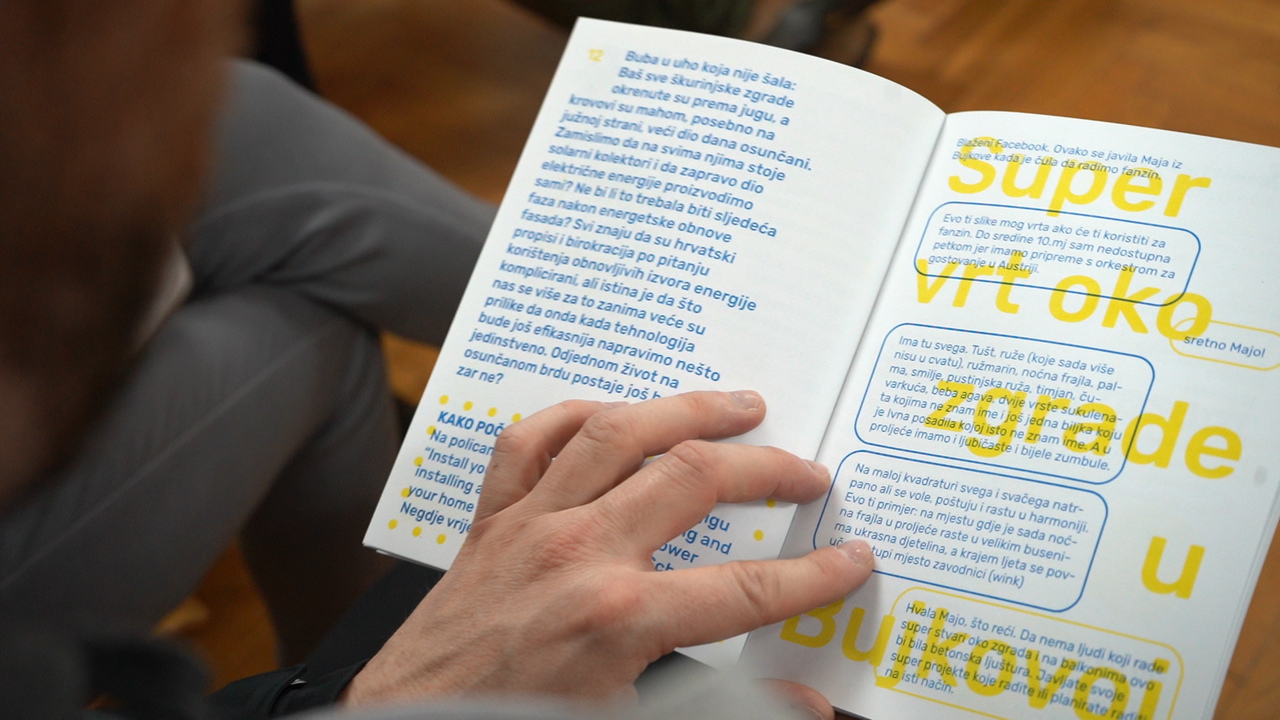 12
Buba u uho koja nije šala:
Baš sve škurinjske zgrade
okrenute su prema jugu, a
krovovi su mahom, posebno na
južnoj strani, veći dio dana osunčani.
Zamislimo da na svima njima stoje
solarni kolektori i da zapravo dio
električne energije proizvodimo
sami? Ne bi li to trebala biti sljedeća
faza nakon energetske obnove
fasada? Svi znaju da su hrvatski
propisi i birokracija po pitanju
korištenja obnovljivih izvora energije
komplicirani, ali istina je da što
nas se više za to zanima veće su
prilike da onda kada tehnologija
bude još efikasnija napravimo nešto
jedinstveno. Odjednom život na
osunčanom brdu postaje još
zar ne?
KAKO
Na
"Install
installing a
your home
Negdje
and
Super
vrt oko
zgrade
u
Bujkovoj
Blaženi Facebook. Ovako se javila Maja iz
Bujkove kada je čula da radimo fanzin.
Evo ti slike mog vrta ako će ti koristiti za
fanzin. Do sredine 10.mj sam nedostupna
petkom jer imamo pripreme s orkestrom za
gostovanje u Austriji.
sretno Majo!
Ima tu svega. Tušt, ruže (koje sada više
nisu u cvatu), ružmarin, noćna frajla, pal-
ma, smilje, pustinjska ruža, timjan, ču-
varkuća, beba agava, dvije vrste sukulena-
ta kojima ne znam ime i još jedna biljka koju
je Ivna posadila kojoj isto ne znam ime. A u
proljeće imamo i ljubičaste i bijele zumbule.
Na maloj kvadraturi svega i svačega natr-
pano ali se vole, poštuju i rastu u harmoniji.
Evo ti primjer: na mjestu gdje je sada noć-
na frajla u proljeće raste u velikim buseni-
ma ukrasna djetelina, a krajem ljeta se pov-
mjesto zavodnici (wink)
Hvala Majo, što reći. Da nema ljudi koji rade
super stvari oko zgrada i na balkonima ovo
bi bila betonska ljuštura. Javljate svoje
super projekte koje radite ili planirate raditi
na isti način.